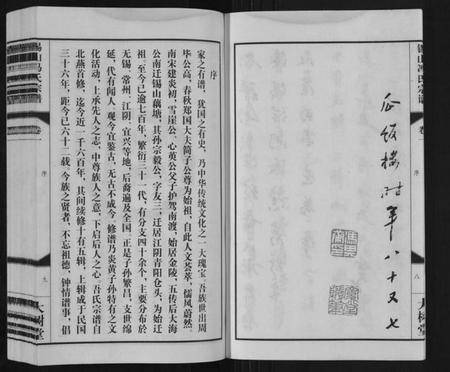 瓜飯樓時年八十又七
錫山馮氏宗譜
卷一
序
八
大樹堂
序
家之有譜，猶国之有史，乃中华传统文化之一大瑰宝。吾族世出周
毕公高，春秋郑国大夫简子公尊为始祖，自此人文荟萃，儒风蔚然。
南宋建炎初，雪崖公、心英公父子护驾南渡，始居金陵，五传后大海
公南迁锡山藕塘，其孙宗毅公，字友三，迁居江阴青阳仓头，为始迁
祖，至今已逾七百年，繁衍三十一代，有分支四十余个，主要分布於
无锡、常州、江阴、宜兴等地，后裔遍及全国，正是子孙繁昌，支世绵
延，代有闻人。观今宜鉴古，无古不成今。修谱乃炎黄子孙特有之文
化活动，上承先人之志，中尊族人之意，下启后人之心。吾氏宗谱自
北燕首修，迄今近一千六百年，其间续修十有五辑，上辑成于民国
三十六年，距今已六十二载。今族之贤者，不忘祖德，钟情谱事，倡
錫山馮氏宗譜
卷一
序
九
大樹堂